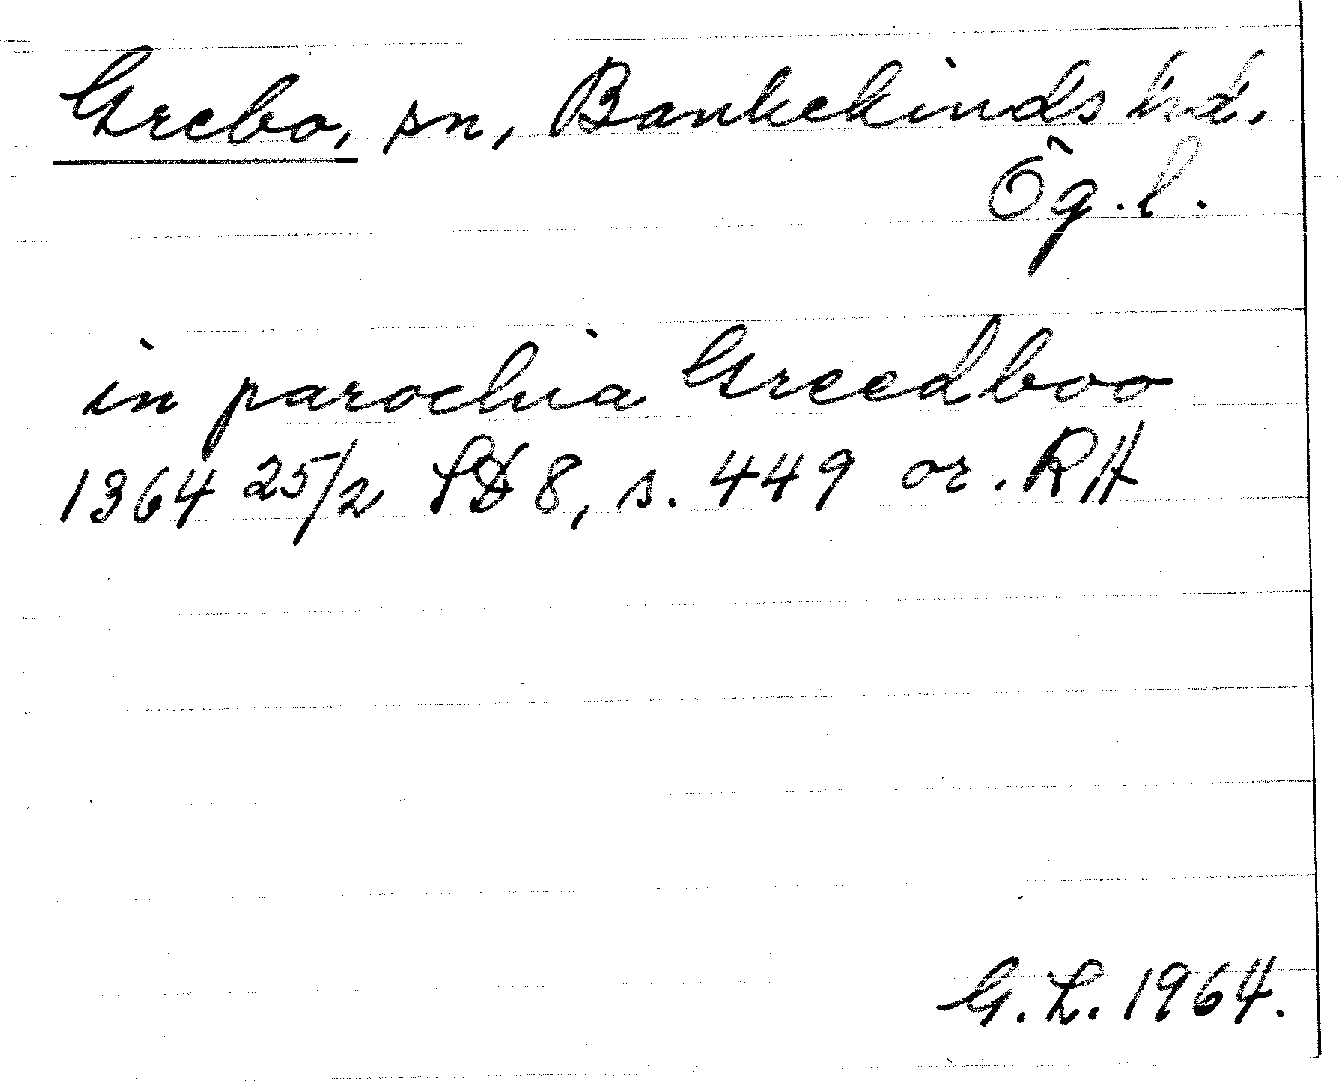 Grebo, sn, Bankekinds hd.
Ög.l.
in parochia Greedboo
1364 25/2 SD 8, s. 449 or. RA
G.L. 1964.